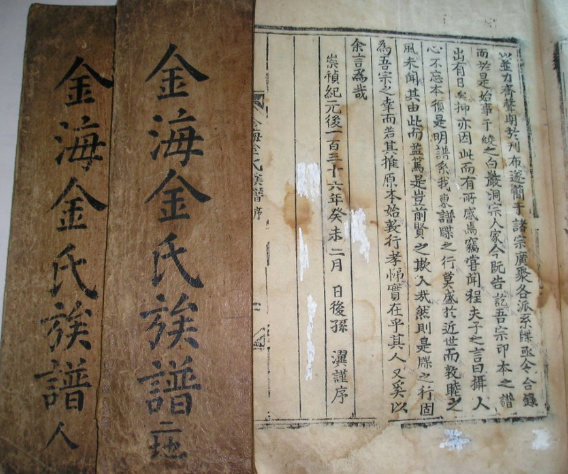 以並力齊聲期於刊布遂簡于諸宗廣聚各派系牒亟令合錄
而於是始事于綾之白巖洞宗人家今既告訖吾宗印本之譜
出有日矣抑亦因此而有所感焉竊嘗聞程夫子之言曰攝人
心不忘本須是明譜系我東譜牒之行莫盛於近世而敦睦之
風未聞其由此而益篤是豈前賢之欺人哉然則是牒之行固
為吾宗之幸而若其推原本始敦行孝悌實在乎其人又奚以
余言為哉
崇禎紀元後一百三十六年癸未二月 日後孫 濯謹序
金海金氏族譜 序
金海金氏族譜 二 地
金海金氏族譜 人